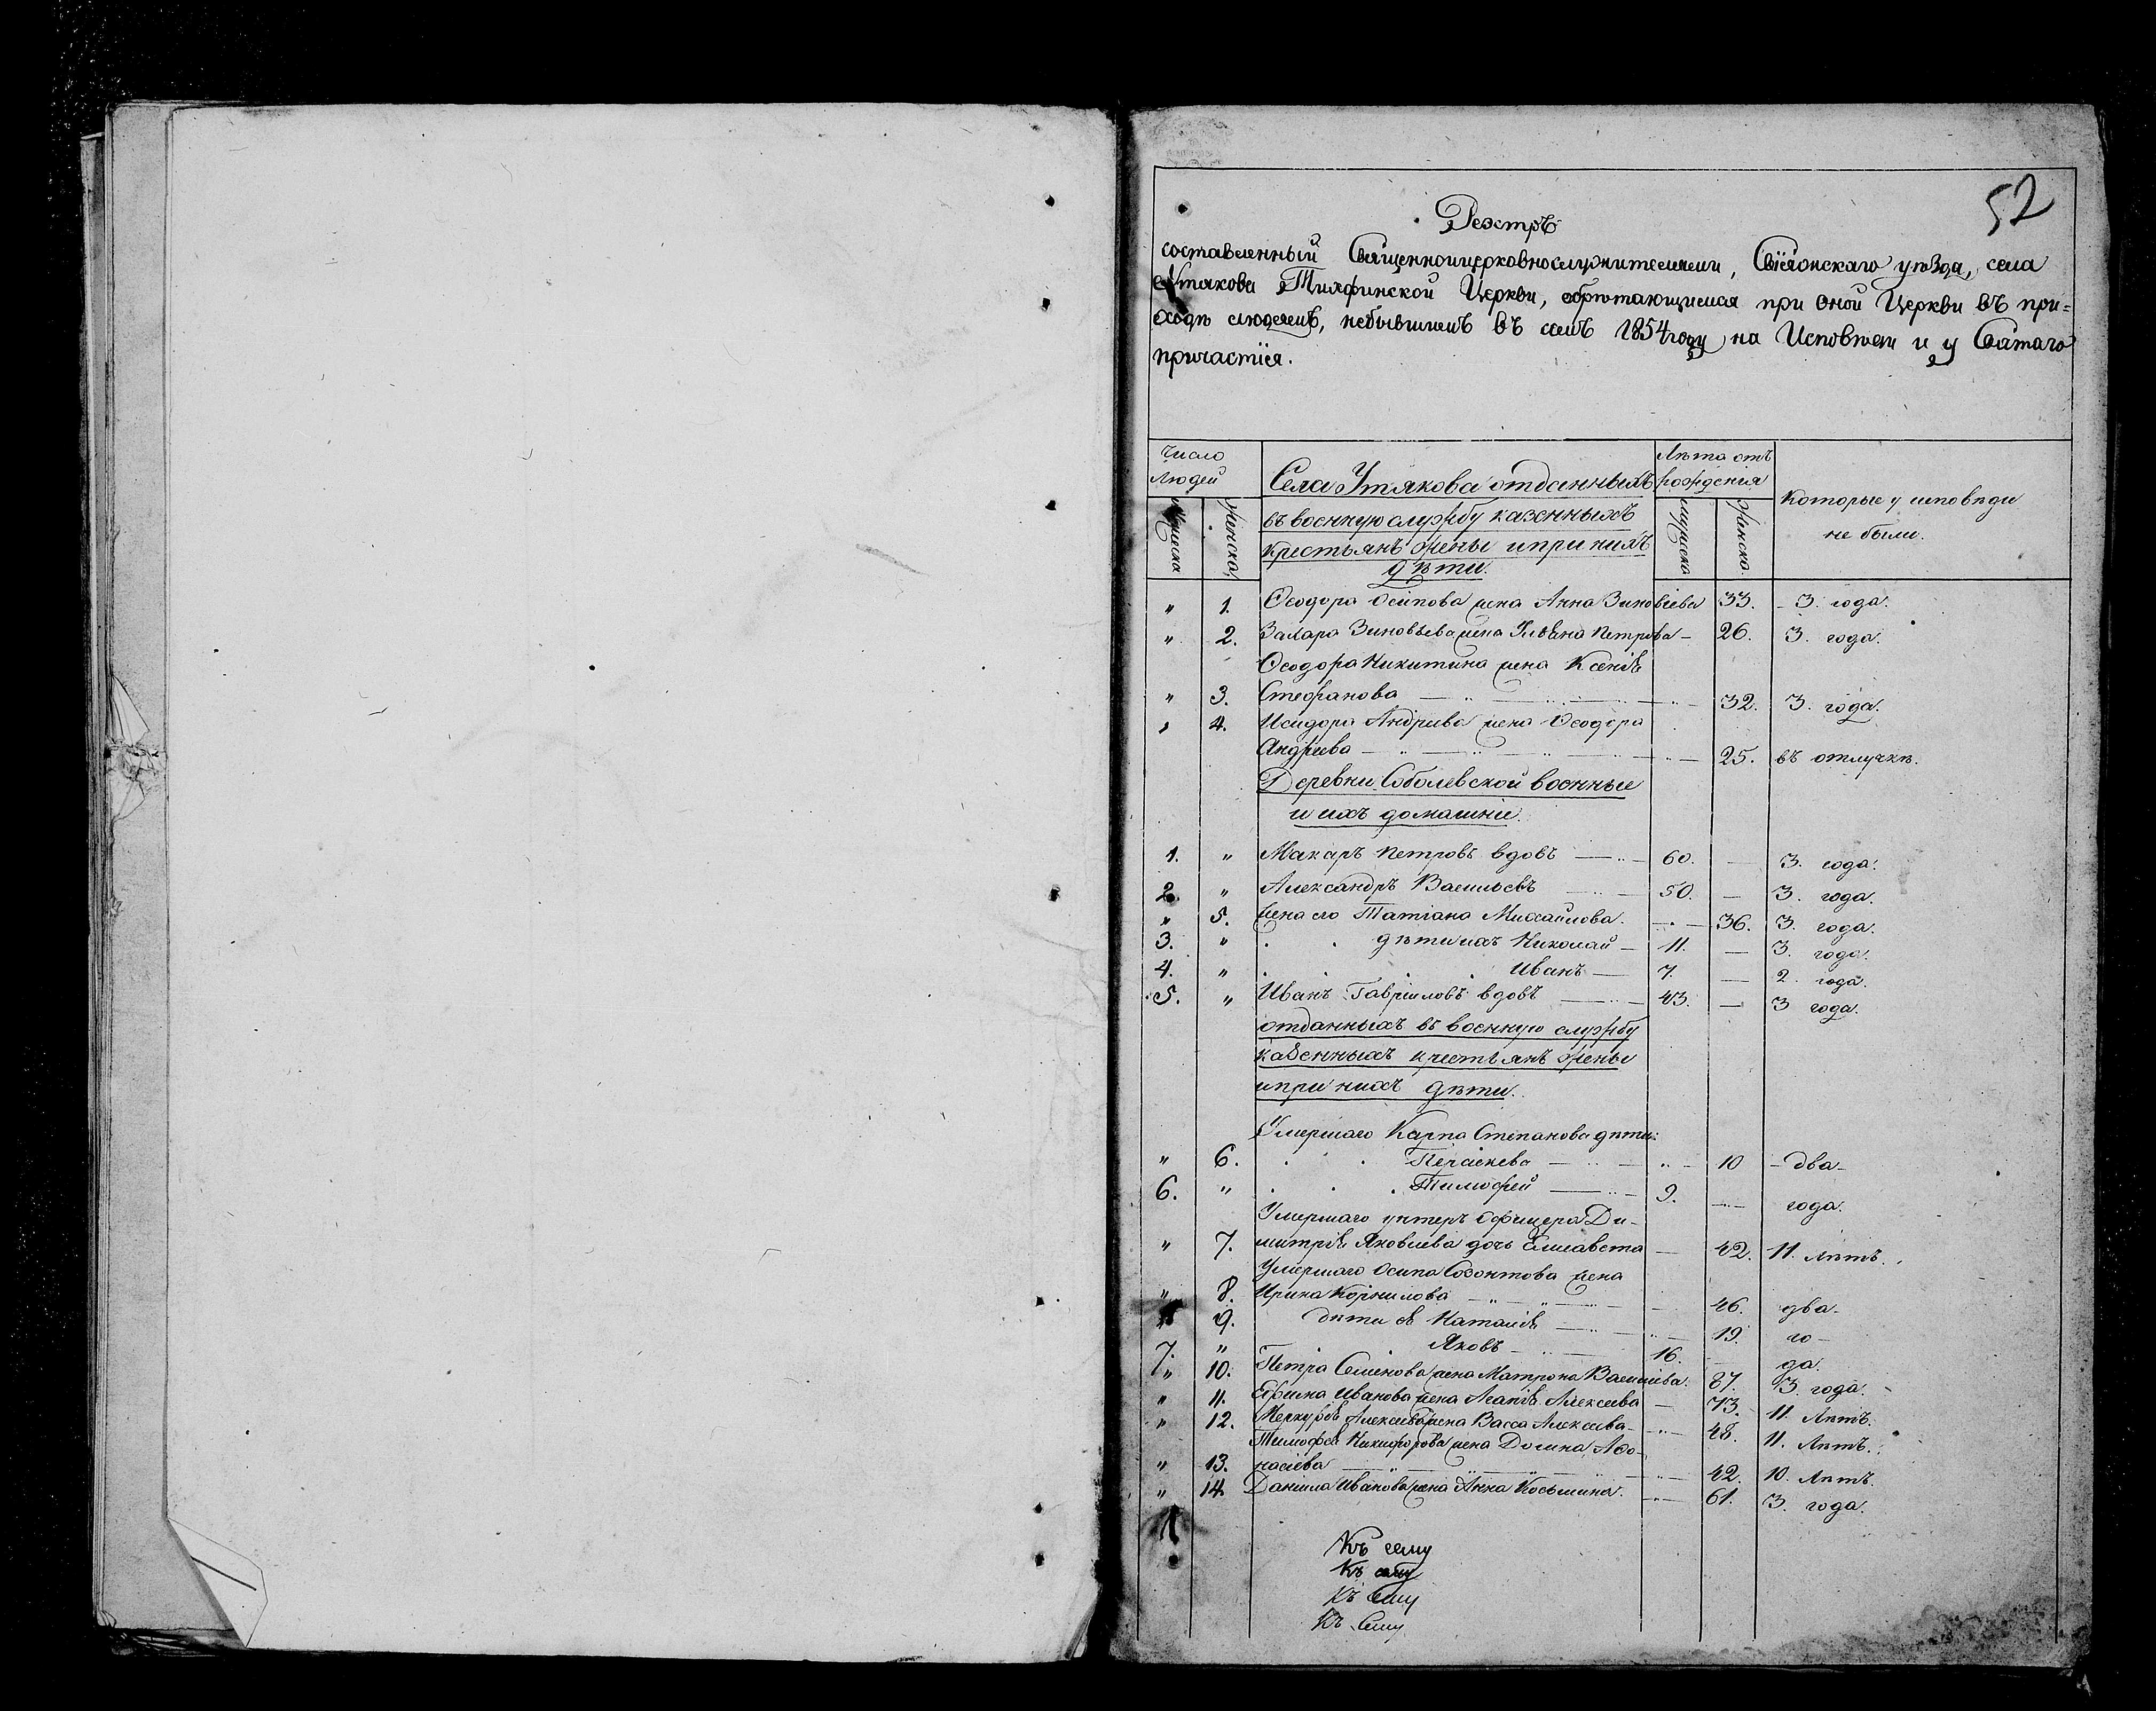 52
Реэстръ
составленный Священноицерковнослужителями, Свіяжскаго уѣзда, села
Утякова Тихфинской Церкви, обрѣтающимся при оной Церкви въ при=
ходѣ людемъ, небывшимъ въ семъ 1854 году на Исповѣди и у Святаго
причастія.
Число людей Села Утякова отданныхъ Лѣта отъ рожденія Которые у исповѣди не были.
мужеска женска въ военную службу казенныхъ мужеска женска
крестьянъ жены и при нихъ
дѣти.
" 1. Ѳеодора Осипова жена Анна Зиновіева 33. 3. года.
" 2. Захара Зиновьева жена Петрова 26. 3. года.
Ѳеодора Никитина жена Ксенія
" 3. Стефанова 32. 3. года.
" 4. Исидора Андріева жена Ѳеодора
Андріева 25. въ отлучкѣ.
Деревни Соболевской военные
и ихъ домашніе.
1. " Макаръ Петровъ вдовъ 60. — 3. года.
2. " Александръ Васильевъ 50. — 3. года.
" 5. жена его Татіана Михайлова. 36. 3. года.
3. " дѣти ихъ Николай 11. — 3. года.
4. " Иванъ 7. — 2. года.
5. " Иванъ Гавріиловъ вдовъ 43. — 3 года.
отданныхъ въ военную службу
казенныхъ крестьянъ жены
и при нихъ дѣти.
Умершаго Карпа Степанова дѣти:
" 6. 10 два
6. " Тимофей 9. — года.
Умершаго унтеръ Офицера Ди-
" 7. митрія Яковлева дочь Елисавета 42. 11. лѣтъ.
Умершаго Осипа Созонтова жена
" 8. Ирина Корнилова 46. два
" 9. дѣти ея Наталія 19. го-
7. " Яковъ 16. да.
" 10. Петра Семенова жена Матрона Васильева. 87. 3. года.
" 11. Ефима Иванова жена Агапія Алексѣева 73. 11. Лѣтъ.
" 12. Меркурія Алексѣева жена Васса Алексѣева 48. 11. Лѣтъ.
Тимофея Никифорова жена Домна Аѳо-
" 13. насіева 42. 10. Лѣтъ.
" 14. Даніила Иванова жена Анна Косьмина. 61. 3. года.
Къ сему
Къ сему
Къ Сему
Къ Сему